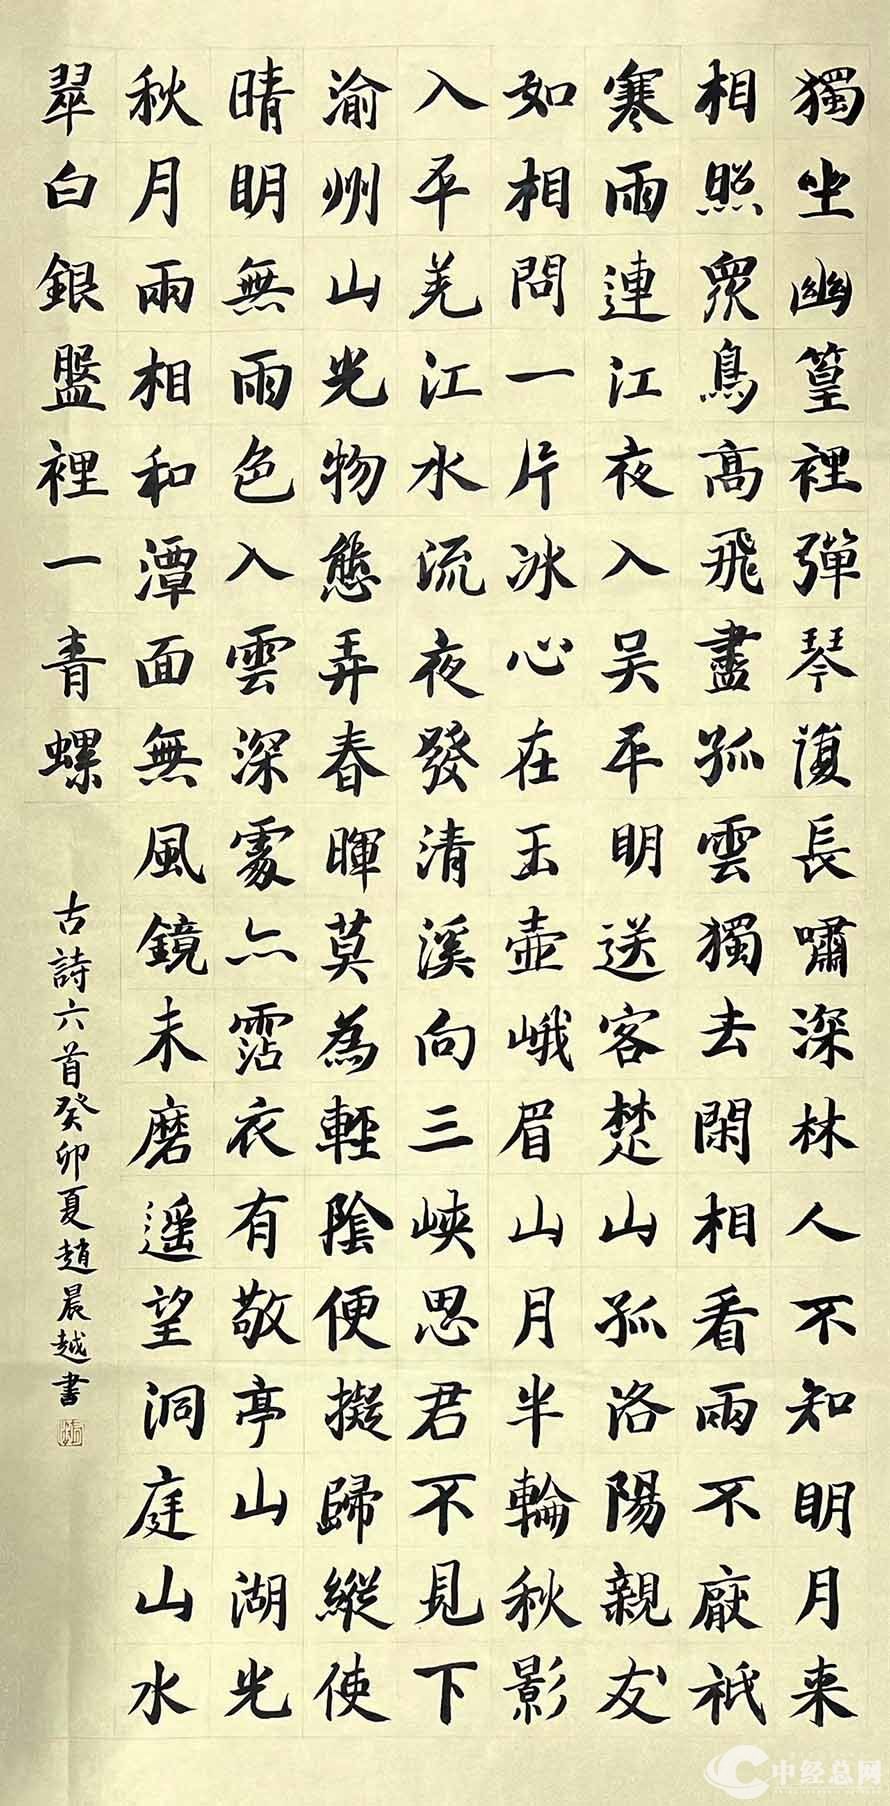 獨坐幽篁裡彈琴復長嘯深林人不知明月来
相照眾鳥高飛盡孤雲獨去閑相看兩不厭祇
寒雨連江夜入吴平明送客楚山孤洛陽親友
如相問一片冰心在玉壺峨眉山月半輪秋影
入平羌江水流夜發清溪向三峽思君不見下
渝州山光物態弄春暉莫為輕陰便擬歸縱使
晴明無雨色入雲深處亦霑衣有敬亭山湖光
秋月兩相和潭面無風鏡未磨遥望洞庭山水
翠白銀盤裡一青螺
古詩六首癸卯夏趙晨越書
中经总网